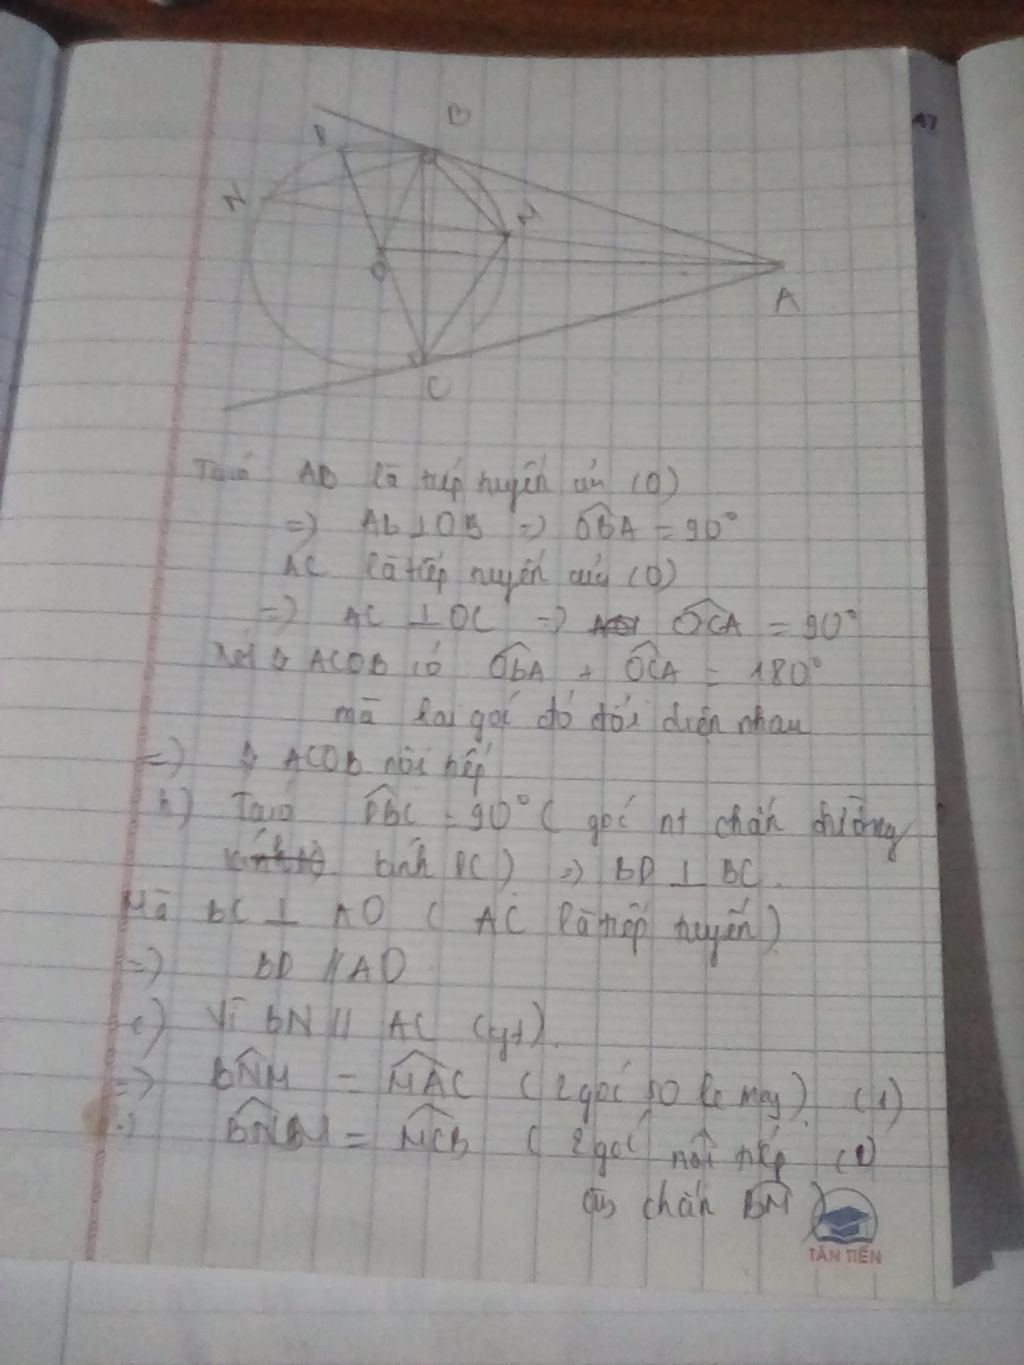 B
N
M
O
A
C
Ta có AB là tiếp tuyến của (O)
=> AB ⊥ OB => OBA = 90°
AC là tiếp tuyến của (O)
=> AC ⊥ OC => OCA = 90°
Xét ◊ ACOB có OBA + OCA = 180°
mà hai góc đó đối diện nhau
=> ◊ ACOB nội tiếp
b) Ta có DBC = 90° ( góc nt chắn đường
kính DC ) => BD ⊥ BC.
Mà BC ⊥ AO ( AC là tiếp tuyến )
=> BD // AO
c) Vì BN // AC (gt).
=> BNM = MAC ( 2 góc so le ) (1)
BNM = MCB ( 2 góc nội tiếp
chắn BM )
TÂN TIẾN